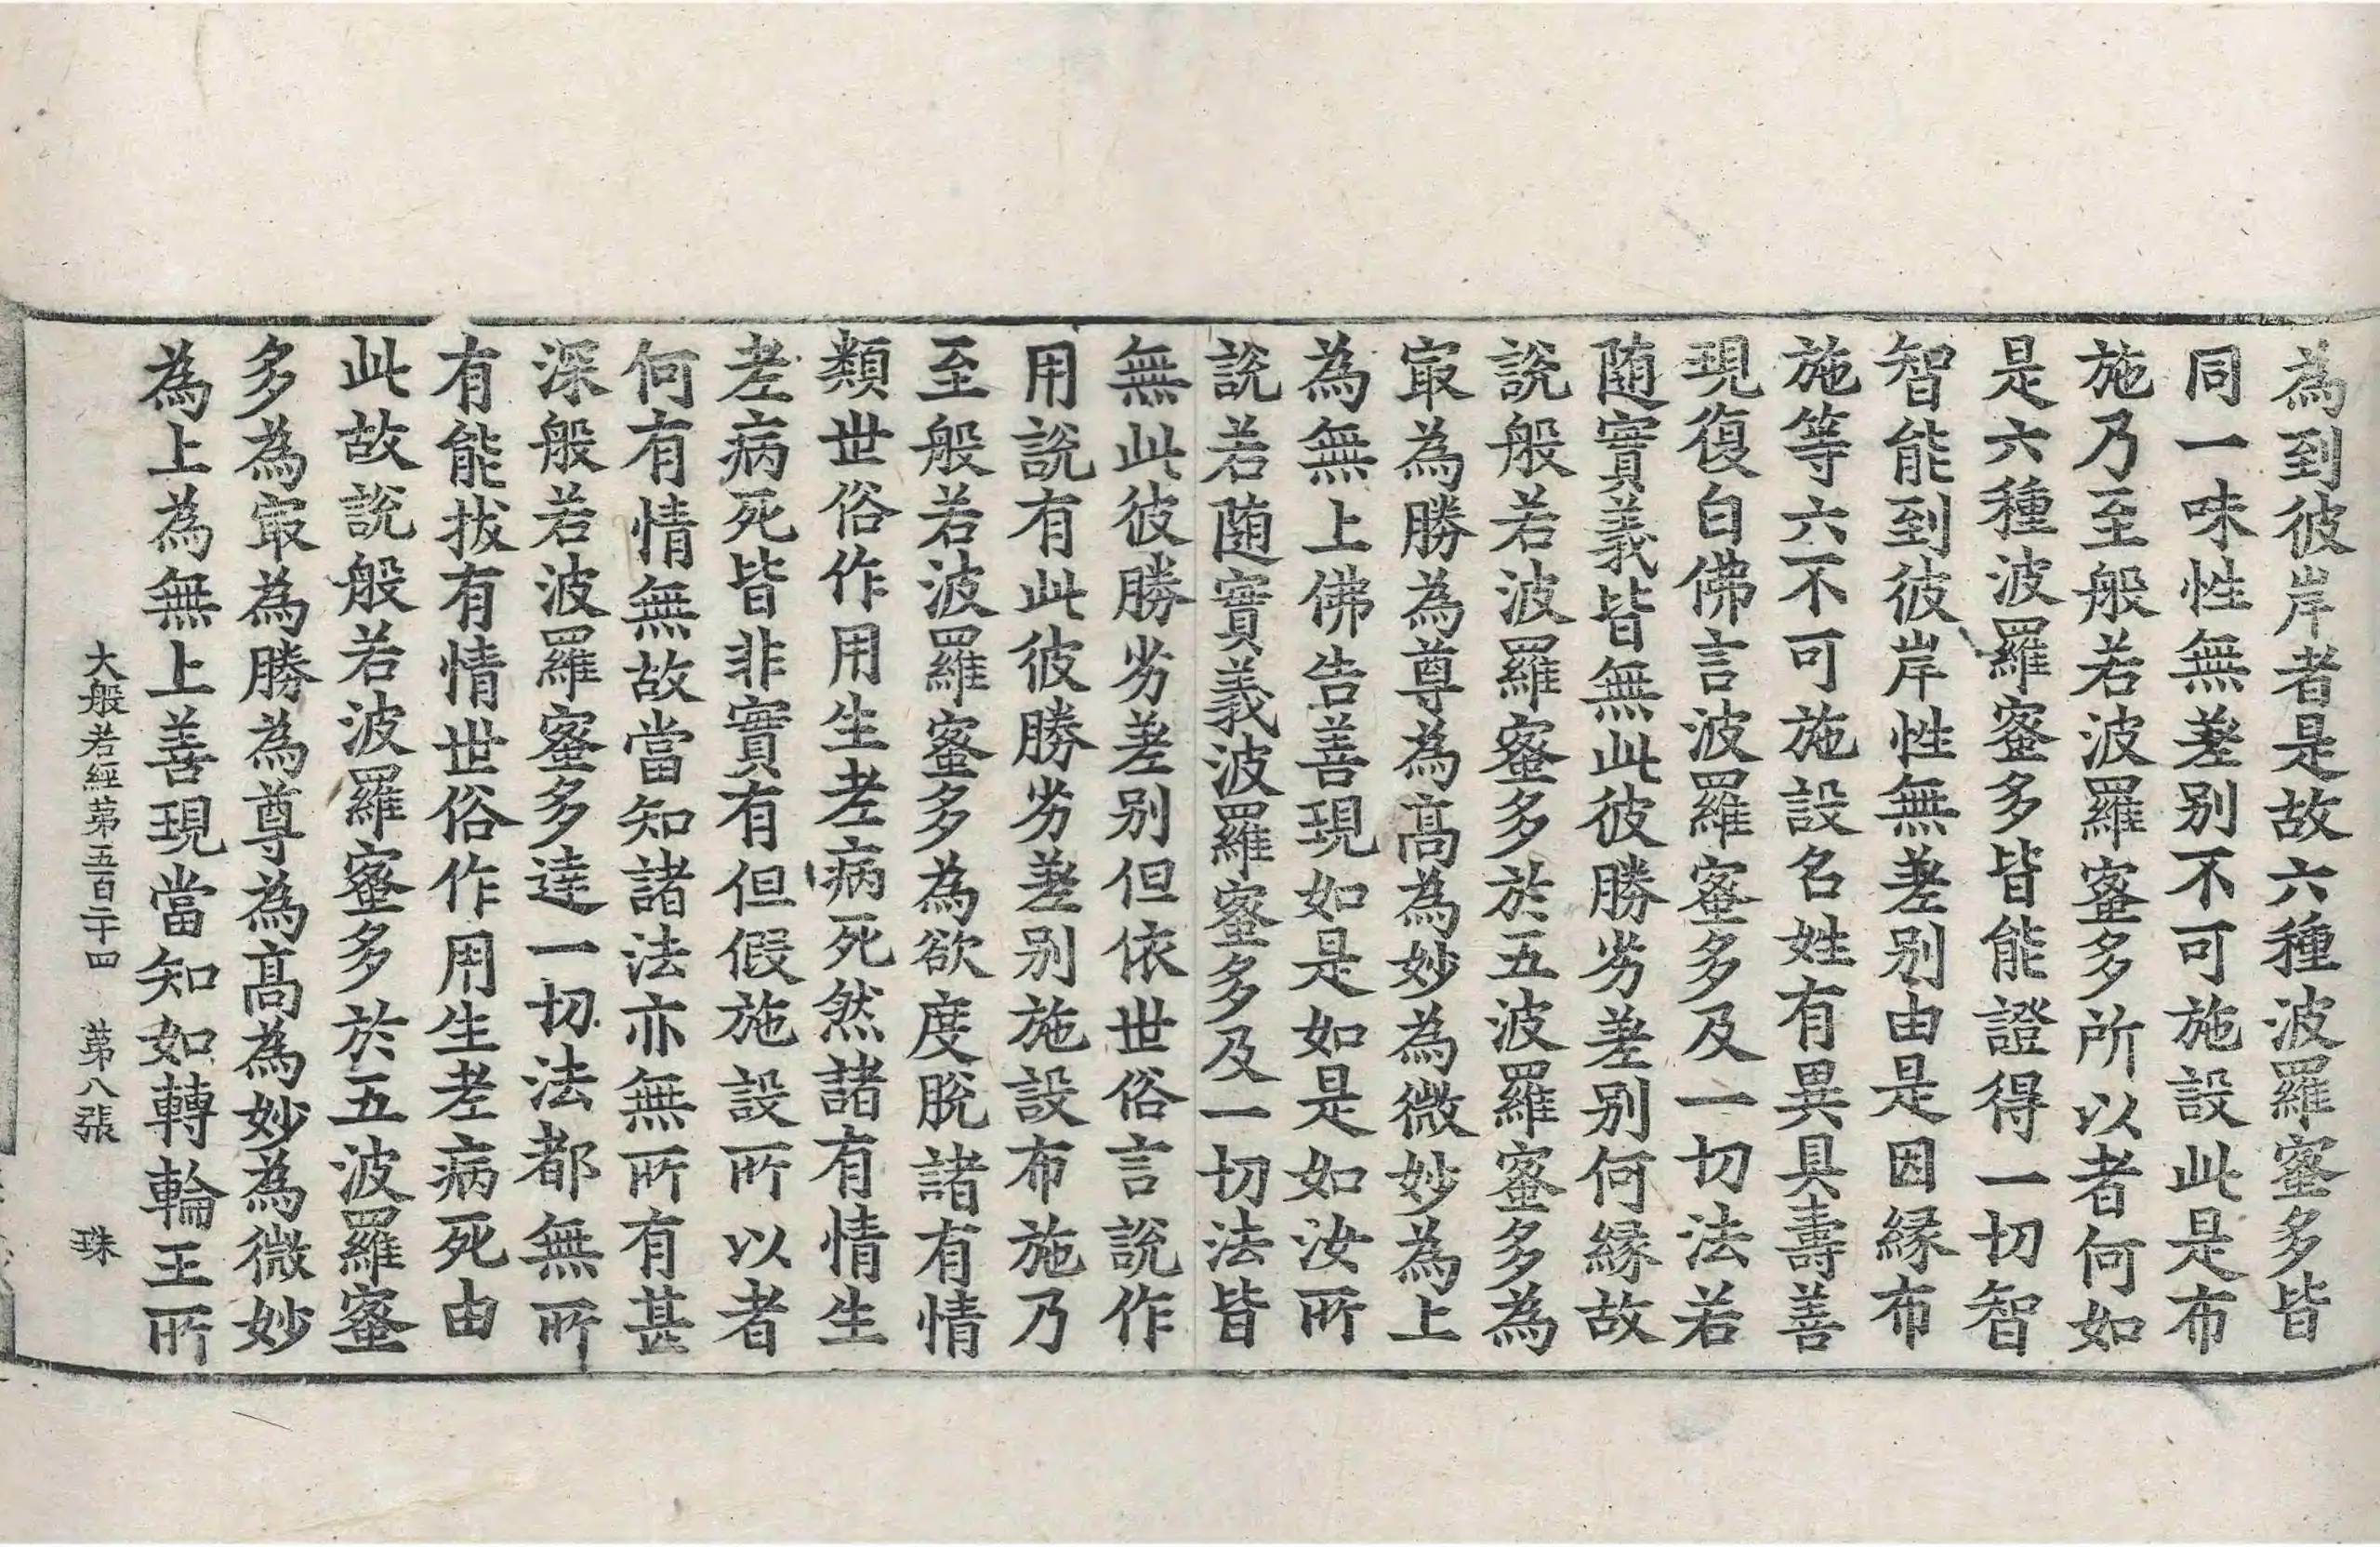 為到彼岸者是故六種波羅蜜多皆
同一味性無差别不可施設此是布
施乃至般若波羅蜜多所以者何如
是六種波羅蜜多皆能證得一切智
智能到彼岸性無差别由是因縁布
施等六不可施設名姓有異具壽善
現復白佛言波羅蜜多及一切法若
随實義皆無此彼勝劣差别何縁故
說般若波羅蜜多於五波羅蜜多為
冣為勝為尊為髙為妙為微妙為上
為無上佛告善現如是如是如汝所
說若随實義波羅蜜多及一切法皆
無此彼勝劣差别但依世俗言說作
用說有此彼勝劣差别施設布施乃
至般若波羅蜜多為欲度脫諸有情
類世俗作用生老病死然諸有情生
老病死皆非實有但假施設所以者
何有情無故當知諸法亦無所有甚
深般若波羅蜜多達一切法都無所
有能拔有情世俗作用生老病死由
此故說般若波羅蜜多於五波羅蜜
多為冣為勝為尊為髙為妙為微妙
為上為無上善現當知如轉輪王所
大般若經苐五百二十四 苐八張 珠